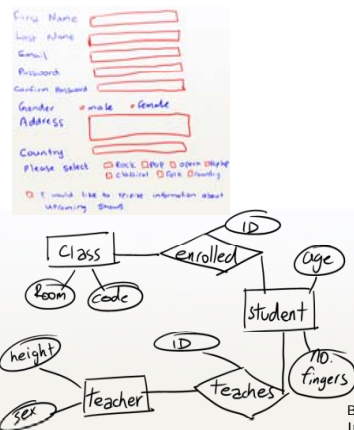 First Name
Last Name
Email
Password
Confirm Password
Gender male female
Address
Country
Please select Rock Pop opera Hiphop
classical Folk Country
I would like to receive information about
upcoming shows
ID
Class
enrolled
age
Room
code
Student
height
ID
no.
fingers
teacher
teaches
sex